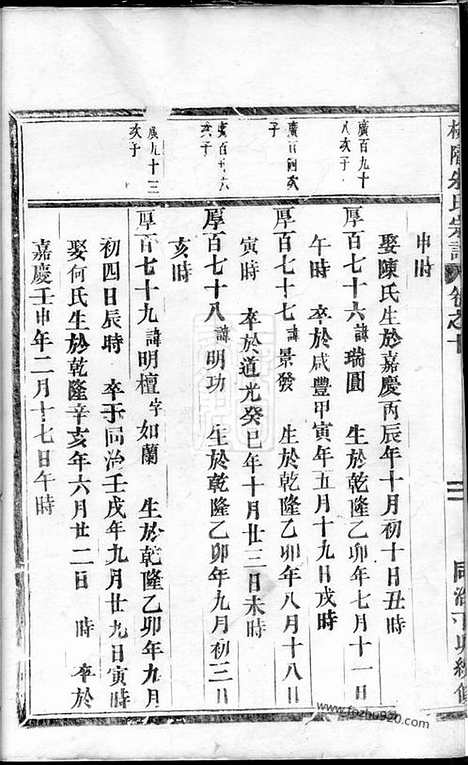 氏宗譜 卷之十
同治
申時
娶陳氏生於嘉慶丙辰年十月初十日丑時
廣百九十
八次子
厚百七十六諱瑞圓 生於乾隆乙卯年七月十一日
午時 卒於咸豐甲寅年五月十九日戌時
廣百
次
子
厚百七十七諱景發 生於乾隆乙卯年八月十八日
寅時 卒於道光癸巳年十月廿三日未時
廣百廿六
次子
厚百七十八諱明功 生於乾隆乙卯年九月初三日
亥時
廣九十三
次子
厚百七十九諱明檀字如蘭 生於乾隆乙卯年九月
初四日辰時 卒于同治壬戌年九月廿九日寅時
娶何氏生於乾隆辛亥年六月廿二日 時 卒於
嘉慶壬申年二月十七日午時
www.fozhu920.com